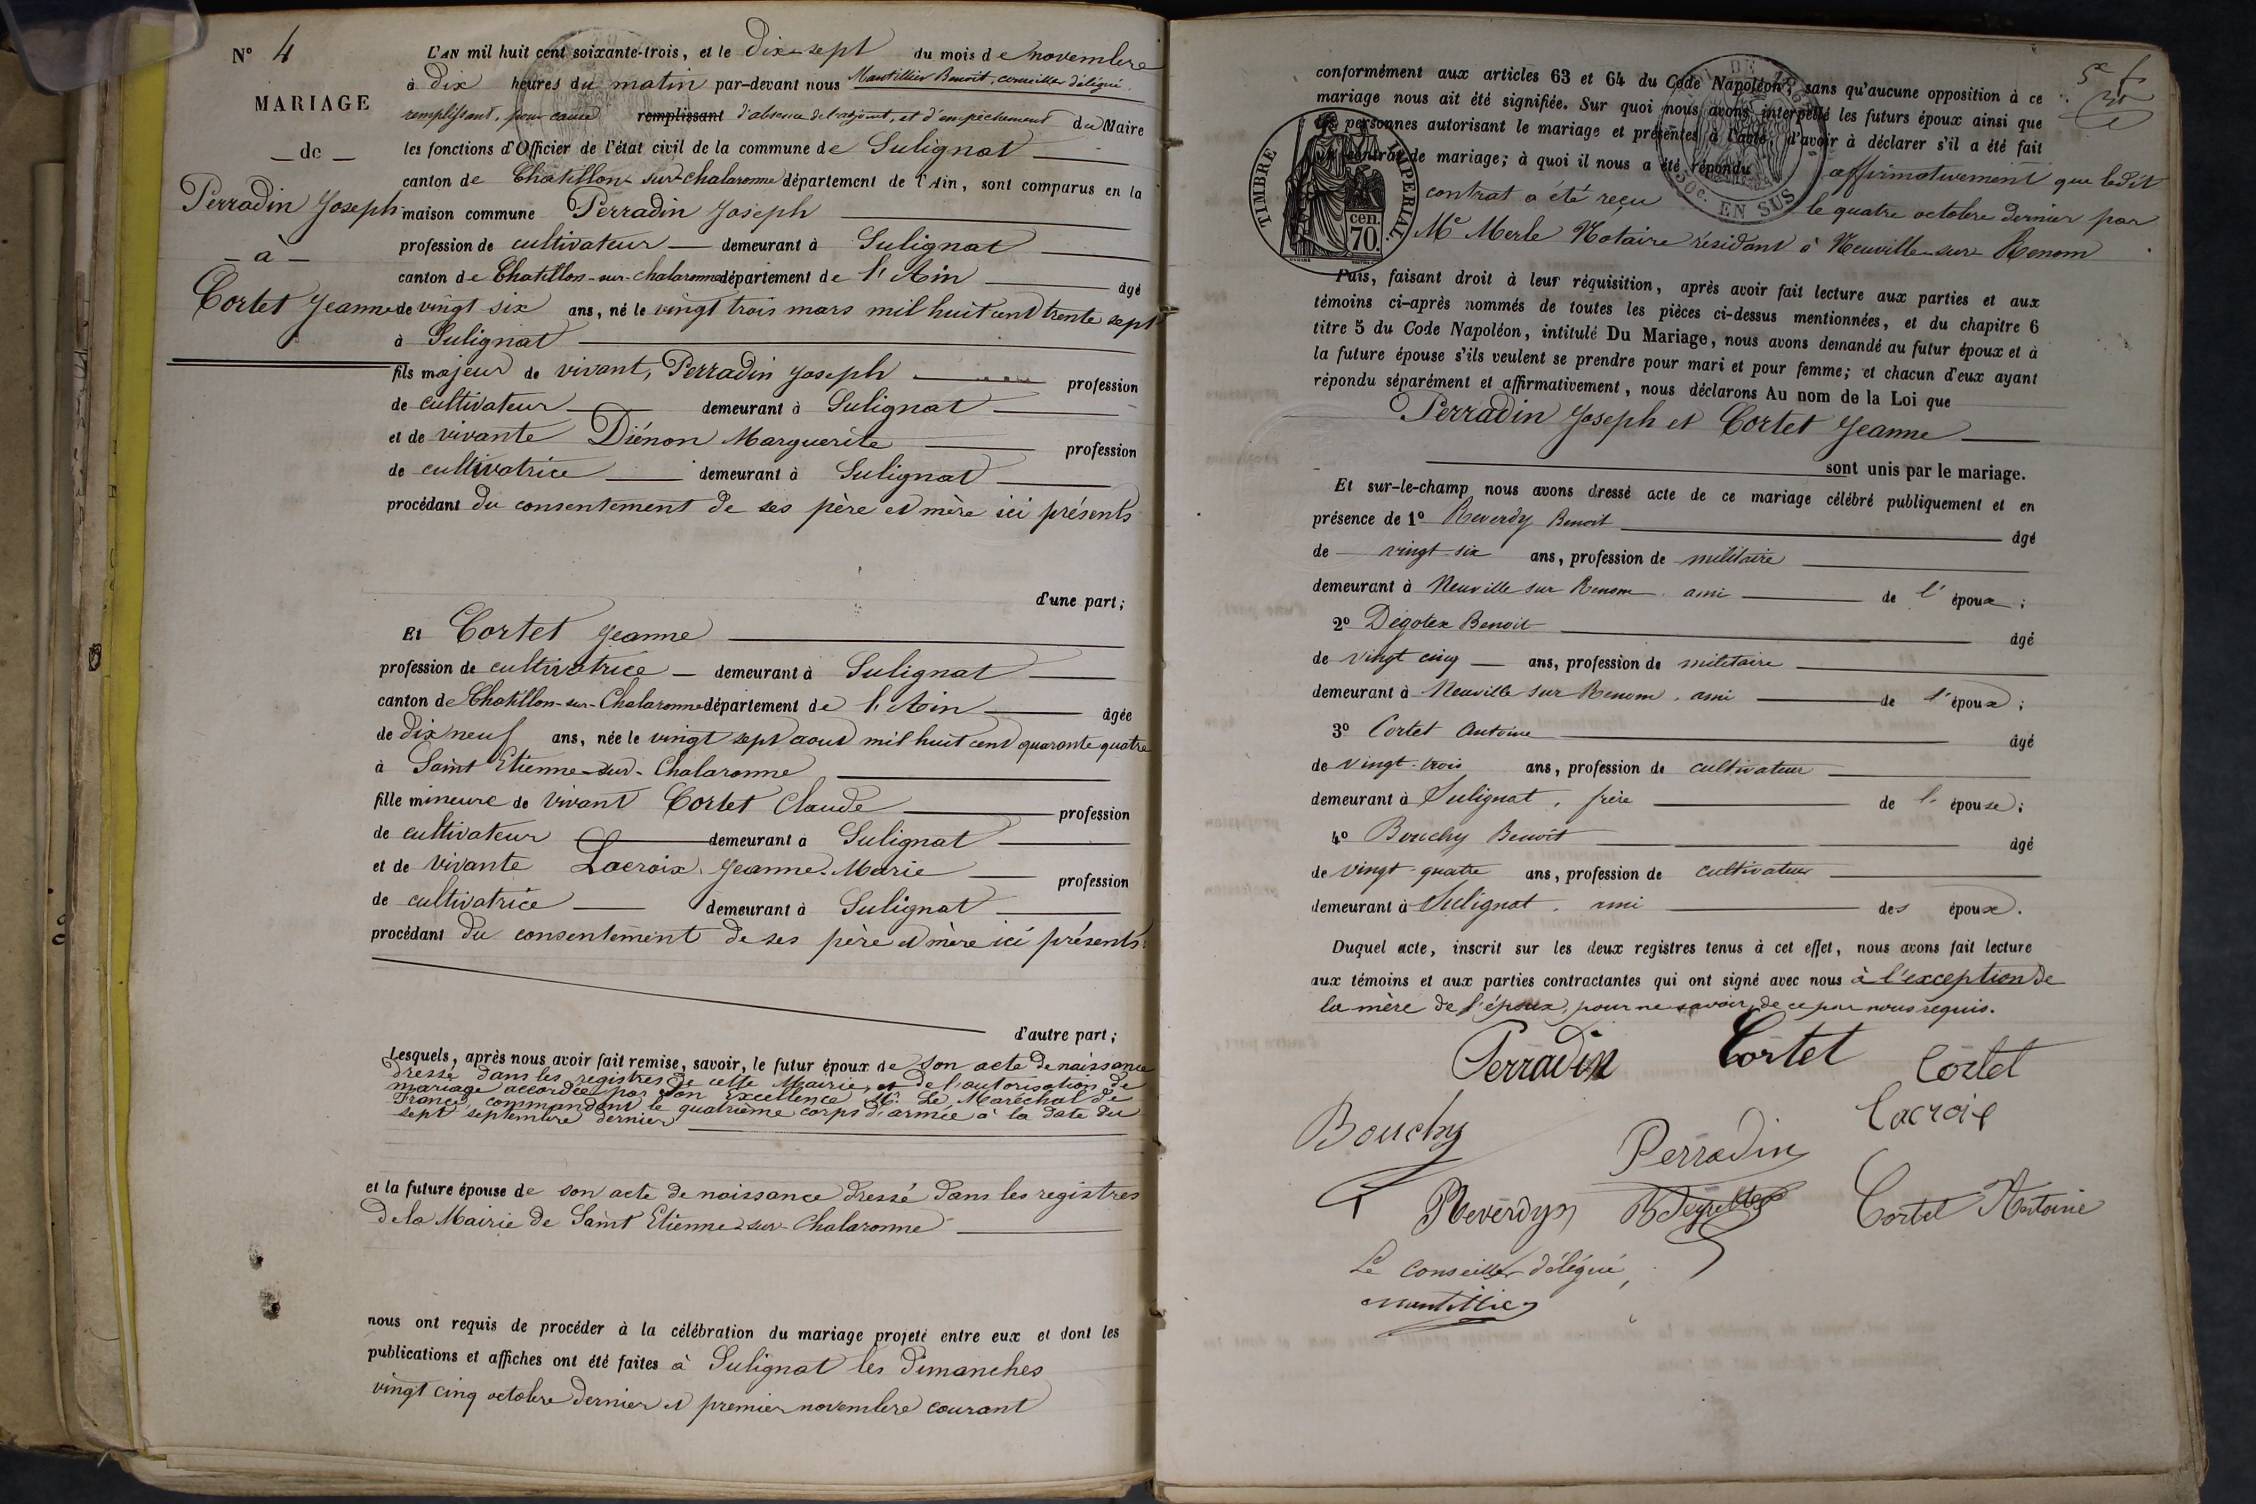 N° 4
MARIAGE
— de —
Perradin Joseph
— à —
Cortet Jeanne
L'AN mil huit cent soixante-trois, et le dix-sept du mois de novembre
à dix heures du matin par-devant nous Mantillier Benoit, conseiller délégué
remplissant, pour cause remplissant d'absence de l'adjoint, et d'empêchement du Maire
les fonctions d'Officier de l'état civil de la commune de Sulignat
canton de Chatillon-sur-chalaronne département de l'Ain, sont comparus en la
maison commune Perradin Joseph
profession de cultivateur — demeurant à Sulignat
canton de Chatillon-sur-chalaronne département de l'Ain âgé
de vingt six ans, né le vingt trois mars mil huit cent trente sept
à Sulignat
fils majeur de vivant, Perradin Joseph profession
de cultivateur demeurant à Sulignat
et de vivante Diénon Marguerite profession
de cultivatrice demeurant à Sulignat
procédant du consentement de ses père et mère ici présents
d'une part;
Et Cortet Jeanne
profession de cultivatrice — demeurant à Sulignat
canton de Chatillon-sur-Chalaronne département de l'Ain âgée
de dix neuf ans, née le vingt sept aout mil huit cent quarante quatre
à Saint Etienne-sur-Chalaronne
fille mineure de vivant Cortet Claude profession
de cultivateur demeurant à Sulignat
et de vivante Lacroix Jeanne-Marie profession
de cultivatrice demeurant à Sulignat
procédant du consentement de ses père et mère ici présents
d'autre part;
Lesquels, après nous avoir fait remise, savoir, le futur époux de son acte de naissance
dressé dans les registres de cette Mairie, et de l'autorisation de
mariage accordée par son Excellence Mr. Le Maréchal de
France, commandant le quatrième corps d'armée à la date du
sept septembre dernier
et la future épouse de son acte de naissance dressé dans les registres
de la Mairie de Saint Etienne-sur-Chalaronne
nous ont requis de procéder à la célébration du mariage projeté entre eux et dont les
publications et affiches ont été faites à Sulignat les dimanches
vingt cinq octobre dernier et premier novembre courant
conformément aux articles 63 et 64 du Code Napoléon, sans qu'aucune opposition à ce
mariage nous ait été signifiée. Sur quoi nous avons interpellé les futurs époux ainsi que
les personnes autorisant le mariage et présentes à l'acte, d'avoir à déclarer s'il a été fait
un contrat de mariage; à quoi il nous a été répondu affirmativement que ledit
contrat a été reçu le quatre octobre dernier par
Me Merle Notaire résidant à Neuville-sur-Renom
TIMBRE IMPERIAL
cen.
70.
50c. EN SUS
Puis, faisant droit à leur réquisition, après avoir fait lecture aux parties et aux
témoins ci-après nommés de toutes les pièces ci-dessus mentionnées, et du chapitre 6
titre 5 du Code Napoléon, intitulé Du Mariage, nous avons demandé au futur époux et à
la future épouse s'ils veulent se prendre pour mari et pour femme; et chacun d'eux ayant
répondu séparément et affirmativement, nous déclarons Au nom de la Loi que
Perradin Joseph et Cortet Jeanne
sont unis par le mariage.
Et sur-le-champ nous avons dressé acte de ce mariage célébré publiquement et en
présence de 1° Reverdy Benoit âgé
de vingt-six ans, profession de militaire
demeurant à Neuville sur Renom, ami de l'époux;
2° Dégotex Benoit âgé
de vingt cinq ans, profession de militaire
demeurant à Neuville sur Renom, ami de l'époux;
3° Cortet Antoine âgé
de vingt-trois ans, profession de cultivateur
demeurant à Sulignat, frère de l'épouse;
4° Bouchy Benoît âgé
de vingt-quatre ans, profession de cultivateur
demeurant à Sulignat, ami des époux.
Duquel acte, inscrit sur les deux registres tenus à cet effet, nous avons fait lecture
aux témoins et aux parties contractantes qui ont signé avec nous à l'exception de
la mère de l'époux, pour ne savoir, de ce par nous requis.
Perradin Cortet Cortet
Bouchy Perradin Lacroix
Reverdy Cortet Antoine
Le Conseiller délégué,
Mantillier